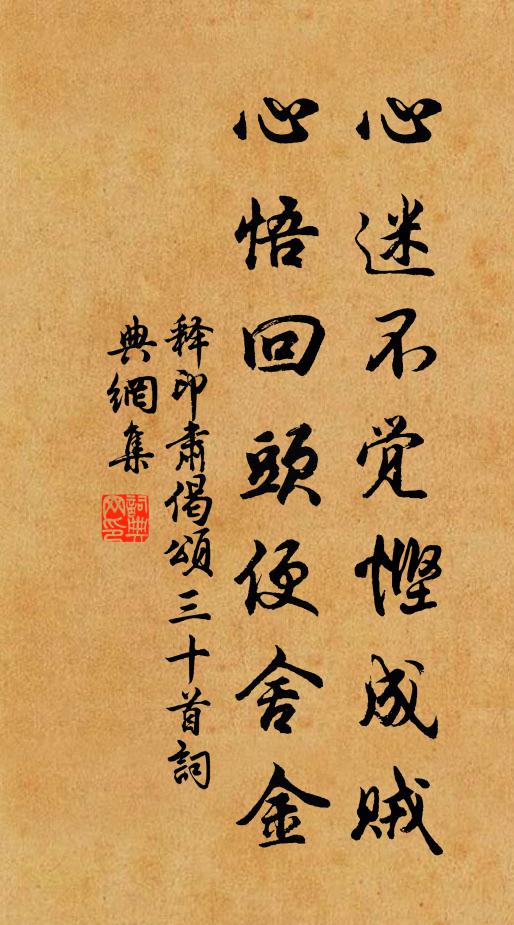 心迷不觉悭成贼
心悟回頭便舍金
释印肃偈頌三十首詞
典網集
詞典网印